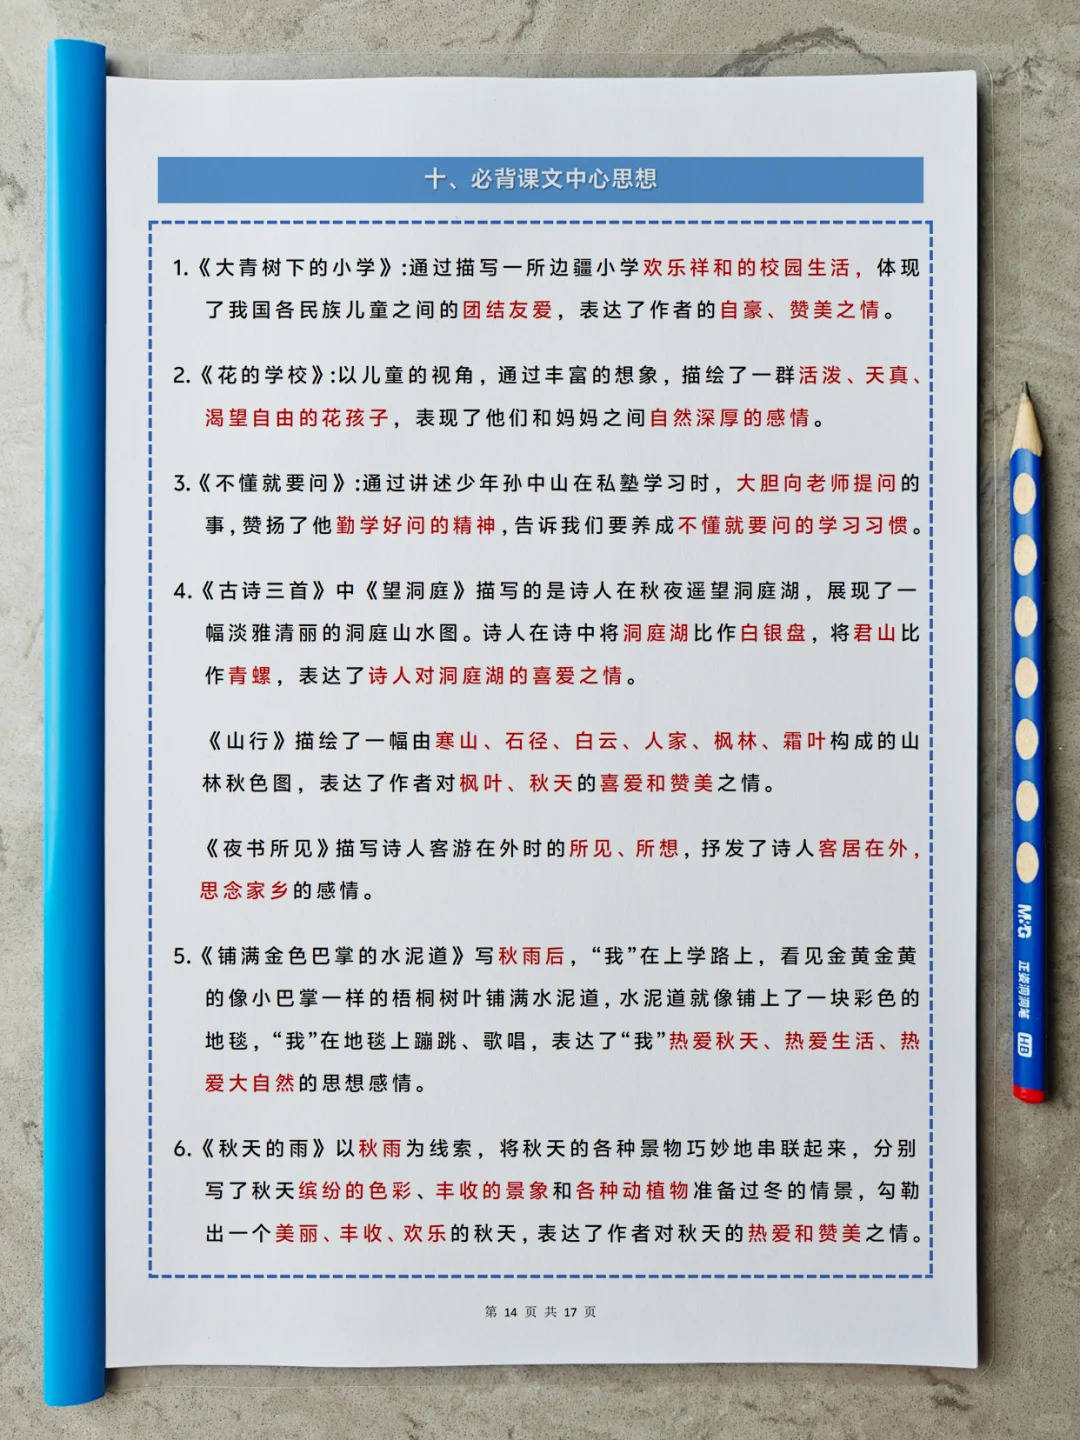 十、必背课文中心思想
1.《大青树下的小学》:通过描写一所边疆小学欢乐祥和的校园生活，体现
了我国各民族儿童之间的团结友爱，表达了作者的自豪、赞美之情。
2.《花的学校》:以儿童的视角，通过丰富的想象，描绘了一群活泼、天真、
渴望自由的花孩子，表现了他们和妈妈之间自然深厚的感情。
3.《不懂就要问》:通过讲述少年孙中山在私塾学习时，大胆向老师提问的
事,赞扬了他勤学好问的精神,告诉我们要养成不懂就要问的学习习惯。
4.《古诗三首》中《望洞庭》描写的是诗人在秋夜遥望洞庭湖，展现了一
幅淡雅清丽的洞庭山水图。诗人在诗中将洞庭湖比作白银盘，将君山比
作青螺，表达了诗人对洞庭湖的喜爱之情。
《山行》描绘了一幅由寒山、石径、白云、人家、枫林、霜叶构成的山
林秋色图，表达了作者对枫叶、秋天的喜爱和赞美之情。
《夜书所见》描写诗人客游在外时的所见、所想，抒发了诗人客居在外，
思念家乡的感情。
5.《铺满金色巴掌的水泥道》写秋雨后，“我”在上学路上，看见金黄金黄
的像小巴掌一样的梧桐树叶铺满水泥道，水泥道就像铺上了一块彩色的
地毯，“我”在地毯上蹦跳、歌唱，表达了“我”热爱秋天、热爱生活、热
爱大自然的思想感情。
6.《秋天的雨》以秋雨为线索，将秋天的各种景物巧妙地串联起来，分别
写了秋天缤纷的色彩、丰收的景象和各种动植物准备过冬的情景，勾勒
出一个美丽、丰收、欢乐的秋天,表达了作者对秋天的热爱和赞美之情。
第 14 页 共 17 页
M&G 正姿洞洞笔 HB